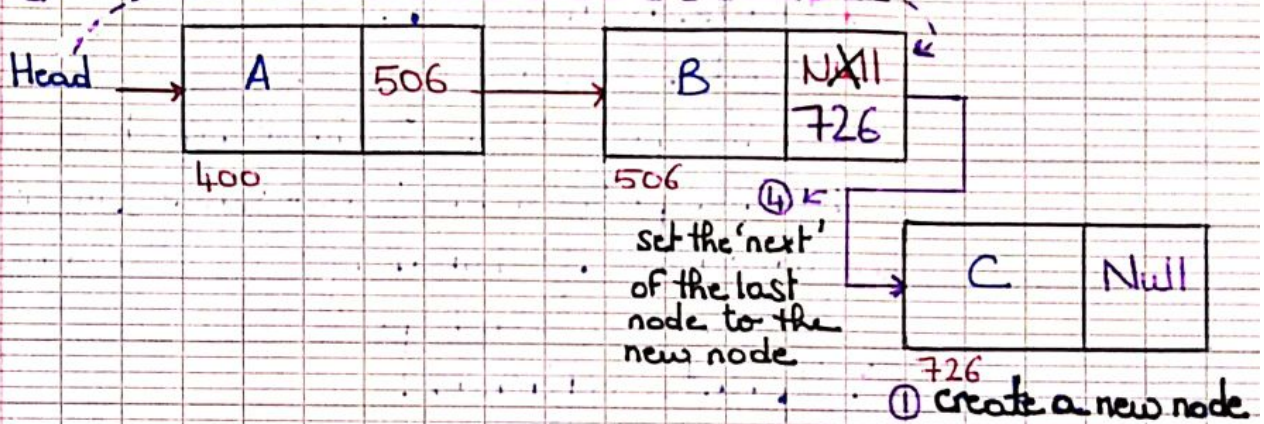 Head A 506 B Null
726
400 506
④
set the 'next'
of the last
node to the
new node
C Null
726
① create a new node